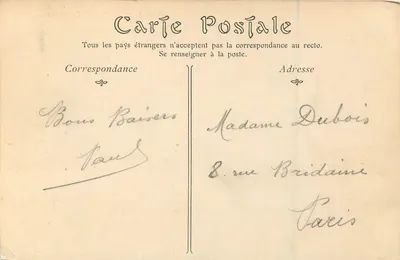 Carte Postale
Tous les pays étrangers n'acceptent pas la correspondance au recto.
Se renseigner à la poste.
Correspondance
Adresse
Bons Baisers
Paul
Madame Dubois
8. rue Bridaine
Paris